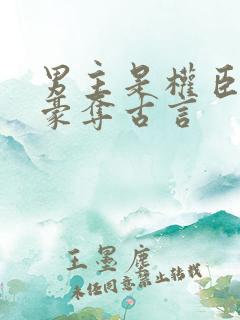 男主是权臣
豪夺古言
王墨尘
未经同意禁止转载